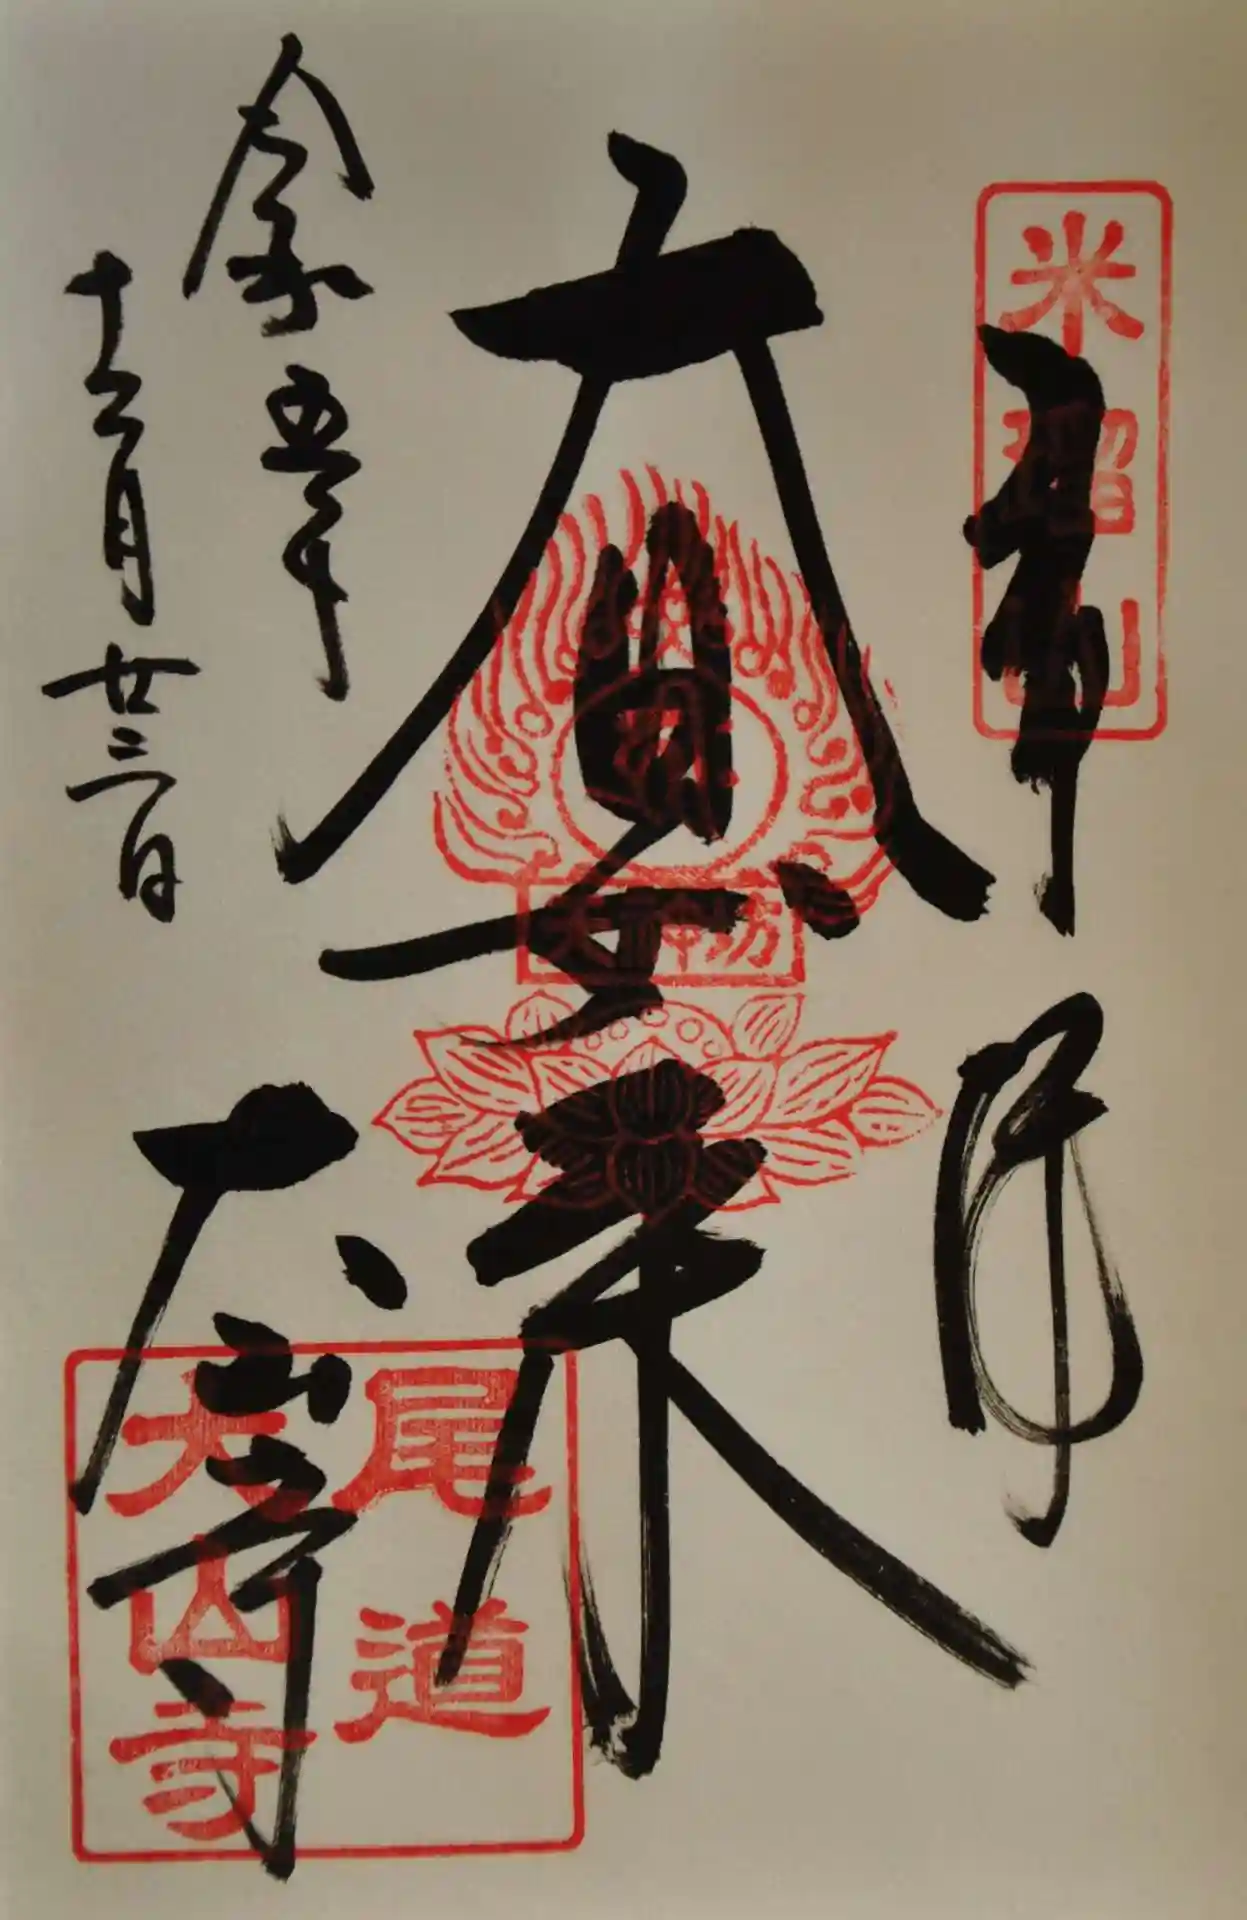 米瑠山
奉拝
大日如来
天神坊
令和五年
十二月廿二日
大山寺
尾道
大山寺